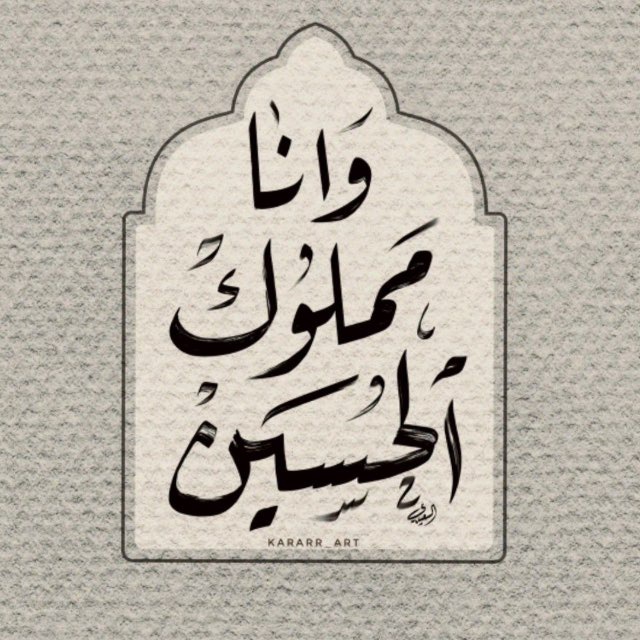 وَانا
مَملوُك
الحُسين
KARARR_ART